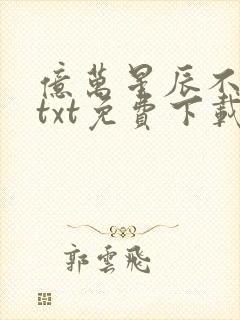 億萬星辰不
txt免費下載
郭雲飛